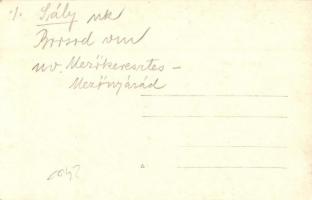 Sály nk
Borsod vm
uv. Mezőkeresztes -
Mezőnyárád